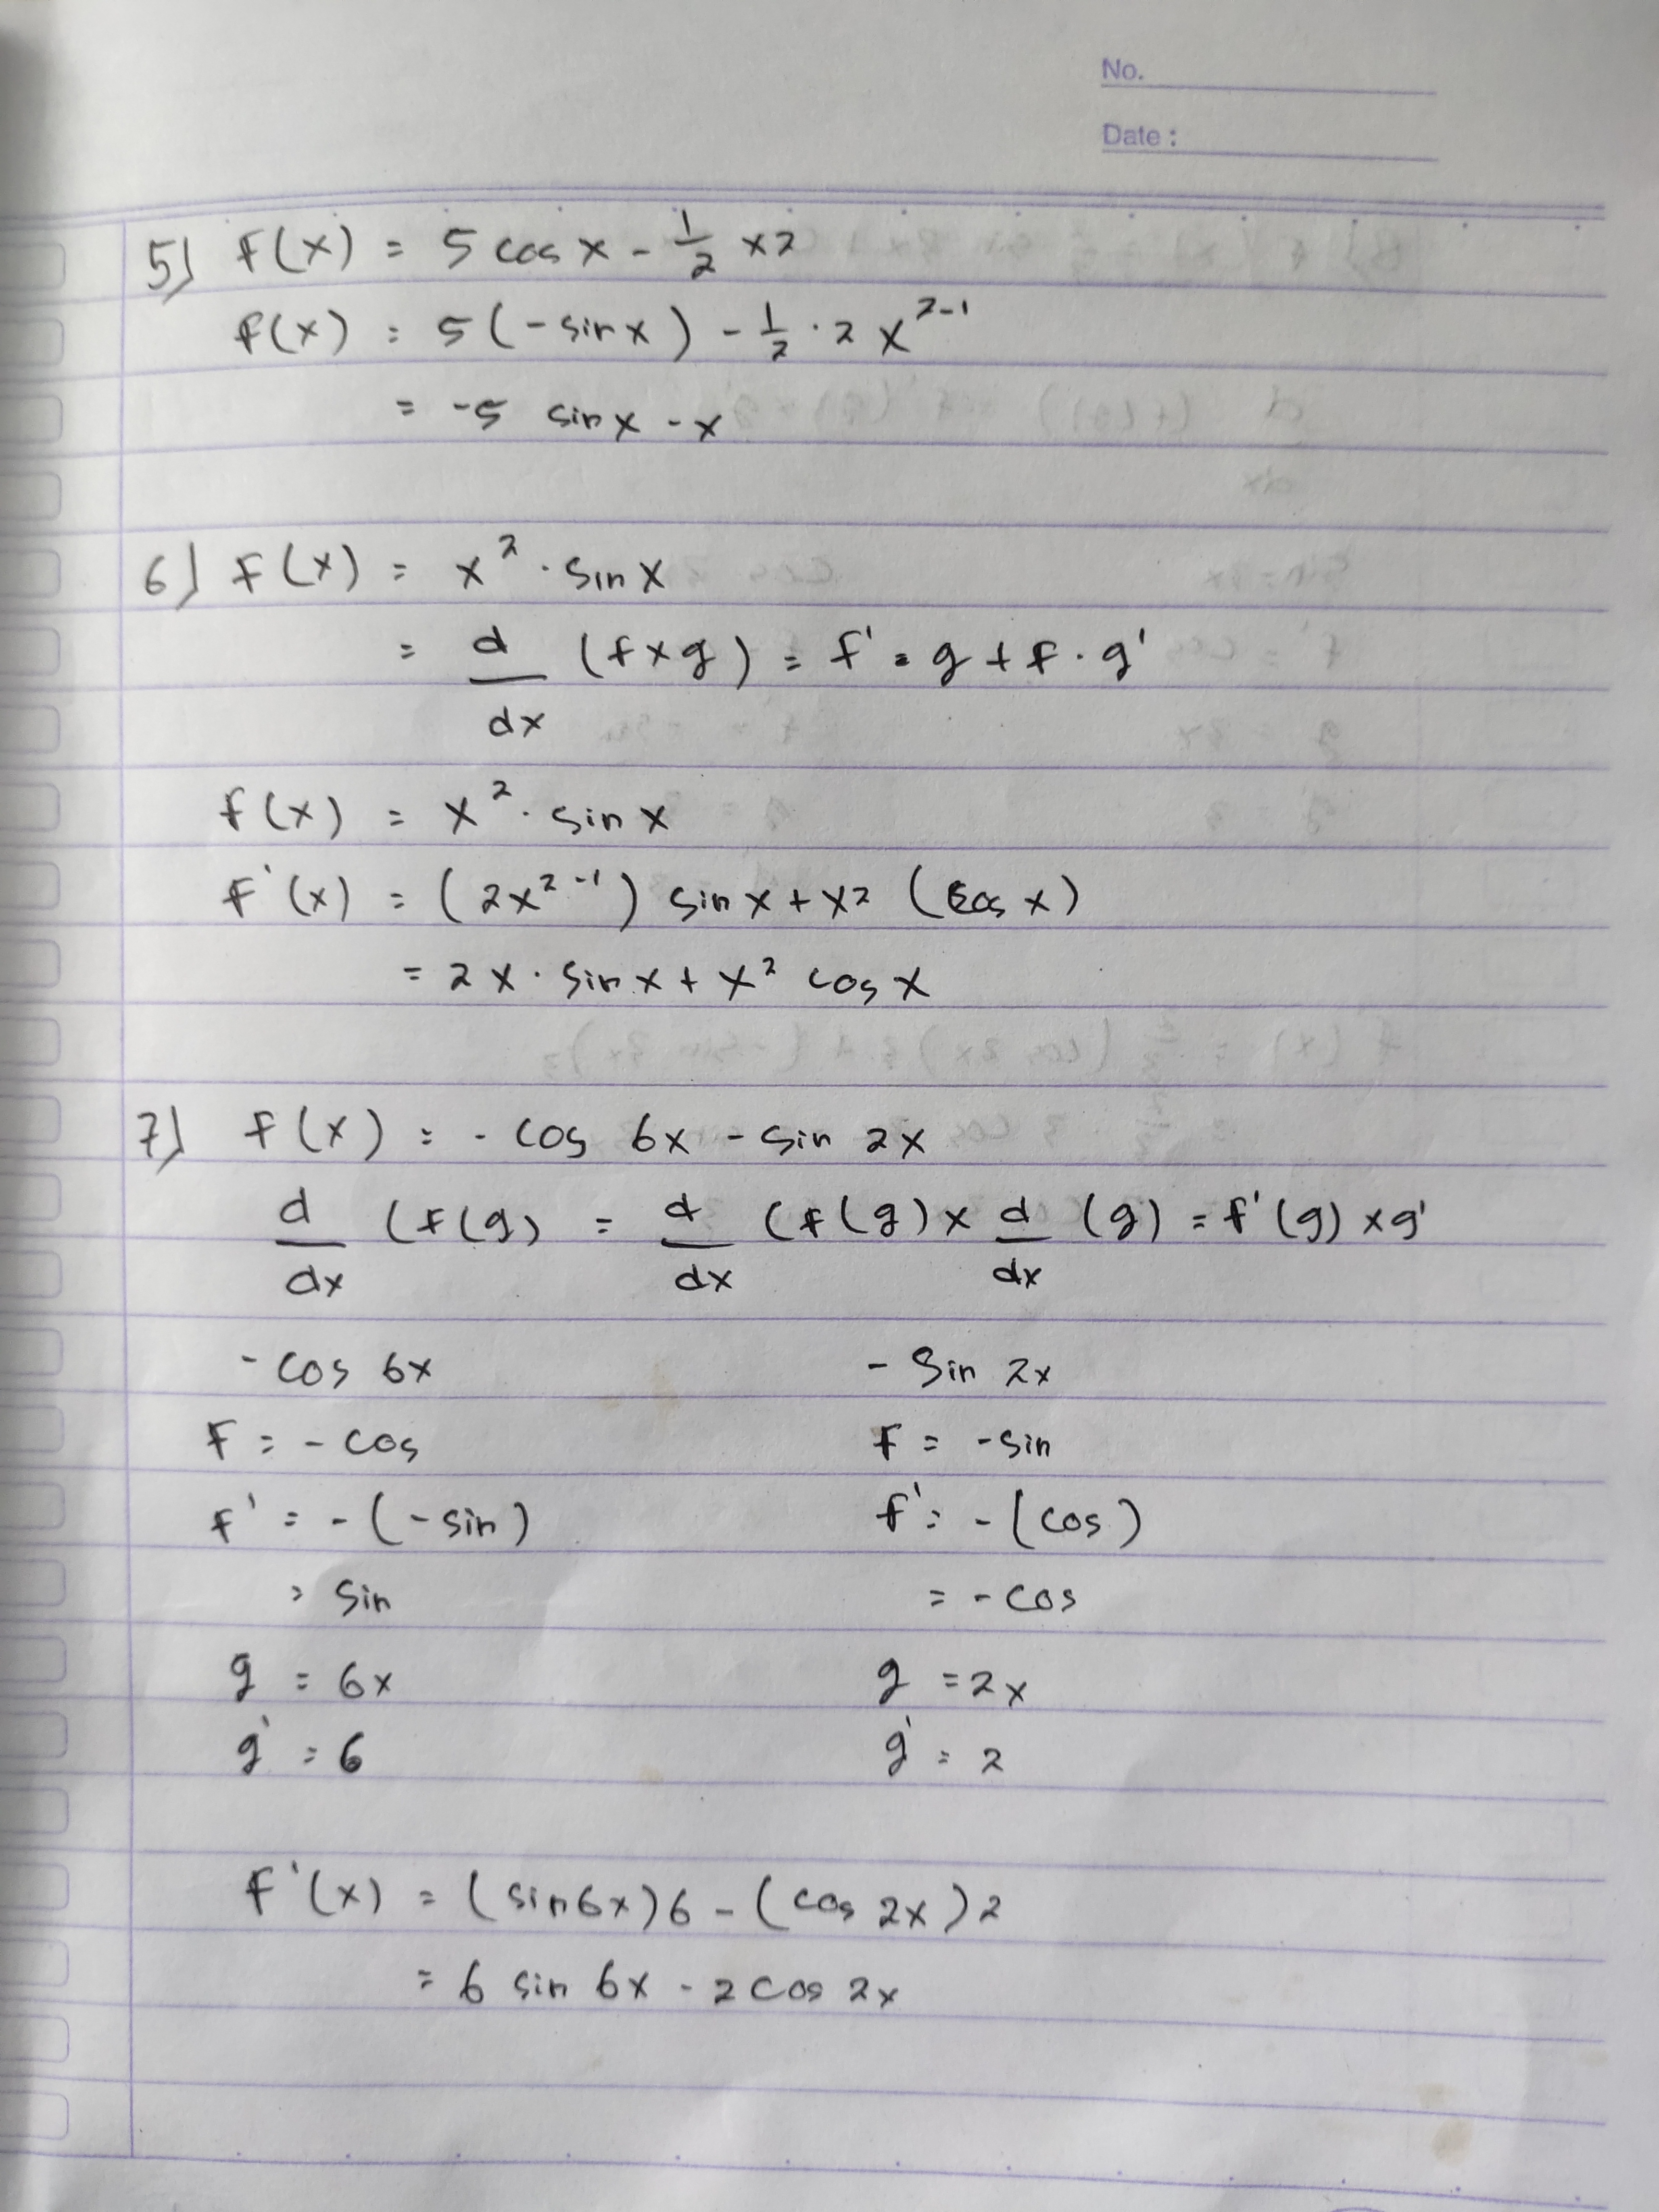 No.
Date :
5) f(x) = 5 cos x - 1/2 x2
f(x) = 5 (-sin x) - 1/2 · 2 x^2-1
= -5 sin x - x
6) f(x) = x² · sin x
= d/dx (f x g) = f' • g + f · g'
f(x) = x² · sin x
f'(x) = (2x^2-1) sin x + x2 (cos x)
= 2x · sin x + x² cos x
7) f(x) = - cos 6x - sin 2x
d/dx (f(g) = d/dx (f(g) x d/dx (g) = f'(g) x g'
- cos 6x - sin 2x
f = - cos f = - sin
f' = - (- sin) f' = - (cos)
= sin = - cos
g = 6x g = 2x
g' = 6 g' = 2
f'(x) = (sin 6x) 6 - (cos 2x) 2
= 6 sin 6x - 2 cos 2x